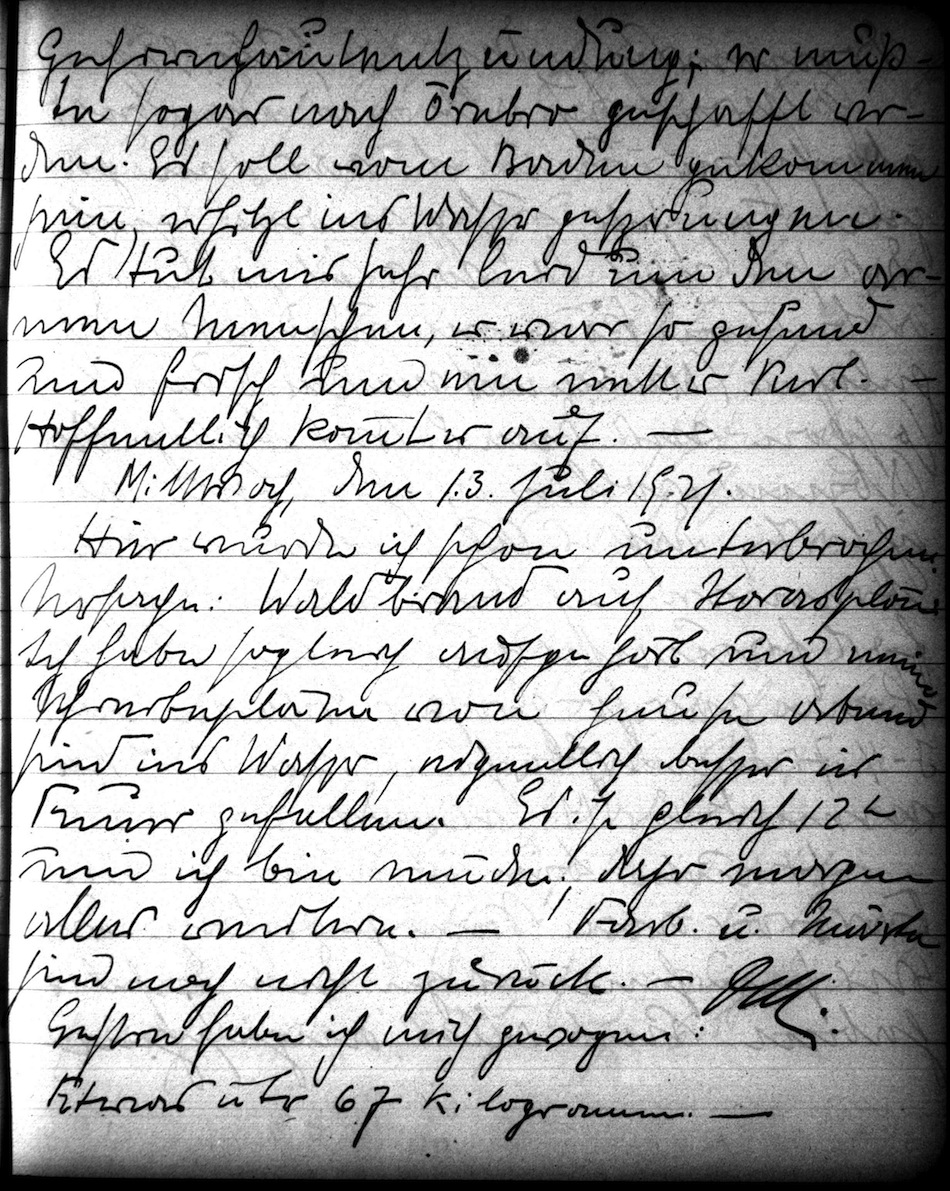 Gehirnhautentzündung; er muß-
te sogar nach Örebro geschafft wer-
den. Es soll vom Baden gekommen
sein, erhitzt ins Wasser gesprungen.
Es tut mir sehr leid um den ar-
men Menschen, er war so gesund
und frisch und ein netter Kerl. —
Hoffentlich kommt er auf. —
Mittwoch, den 13. Juli 1921.
Hier wurde ich schon unterbrochen.
Ursache: Waldbrand auf
Ich habe sogleich aufgehört und meine
von heute abend
sind ins Wasser, eigentlich besser ins
Feuer gefallen. Es ist gleich 12 h
und ich bin müde; daher morgen
alles weitere. — Farb. u.
sind noch nicht zurück. —
Gestern habe ich mich gewogen:
Etwas über 67 Kilogramm. —